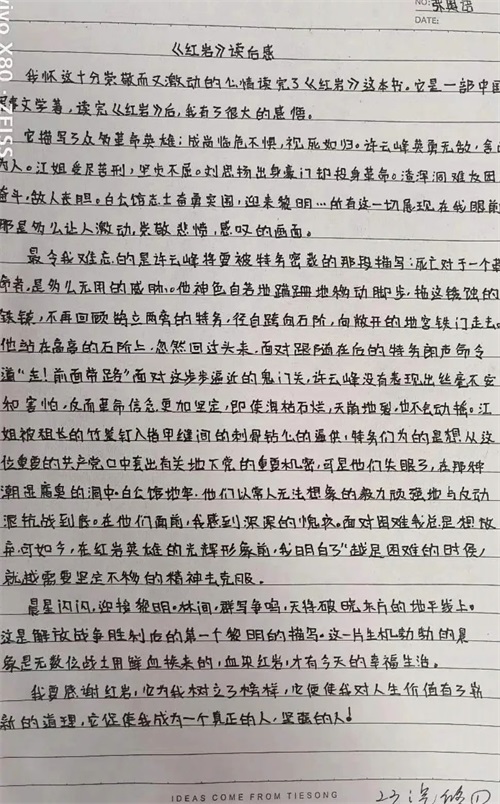 NO:
DATE:
vivo X80 · ZEISS
《红岩》读后感
我怀这十分崇敬而又激动的心情读完了《红岩》这本书。它是一部中国
文学著,读完《红岩》后,我有了很大的感悟。
它描写了众多革命英雄:成岗临危不惧,视死如归。许云峰英勇无敌,舍己
为人。江姐受尽苦刑,坚贞不屈。刘思扬出身豪门却投身革命。渣滓洞难友团
奋斗,敌人丧胆。白公馆志士奋勇突围,迎来黎明…所有这一切展现在我眼前
那是多么让人激动,崇敬 悲愤,感叹的画面。
最令我难忘的是许云峰将要被特务密裁的那段描写:死亡对于一个革
命者,是多么无用的威胁。他神色自若地蹒跚地移动脚步,拖这锈蚀的
铁镣,不再回顾鹄立两旁的特务,径自跨向石阶,向敞开的地窖铁门走去。
他站在高高的石阶上,忽然回过头来,面对跟随在后的特务朗声命令
道"走!前面带路"面对这步步逼近的鬼门关,许云峰没有表现出丝毫不安
和害怕,反而革命信念更加坚定,即使海枯石烂,天崩地裂,也不会动摇。江
姐被粗长的竹签钉入指甲缝间的刺骨钻心的逼供,特务们为的是想从这
位重要的共产党口中套出有关地下党的重要机密,可是他们失眼了,在那种
潮湿腐臭的洞中。白公馆地牢,他们以常人无法想象的毅力顽强地与反动
派抗战到底。在他们面前,我感到深深的愧疚。面对困难我总是想放
弃,可如今,在红岩英雄的光辉形象前,我明白了"越是困难的时候,
就越需要坚定不物的精神去克服。
晨星闪闪,迎接黎明。林间,群写争鸣,天将破晓东方的地平线上。
这是解放战争胜利后的第一个黎明的描写。这一片生机勃勃的景
象是无数位战士用鲜血换来的,血染红岩,才有今天的幸福生活。
我要感谢红岩,它为我树立了榜样,它便使我对人生价值有了崭
新的道理,它促使我成为一个真正的人,坚强的人!
IDEAS COME FROM TIESONG